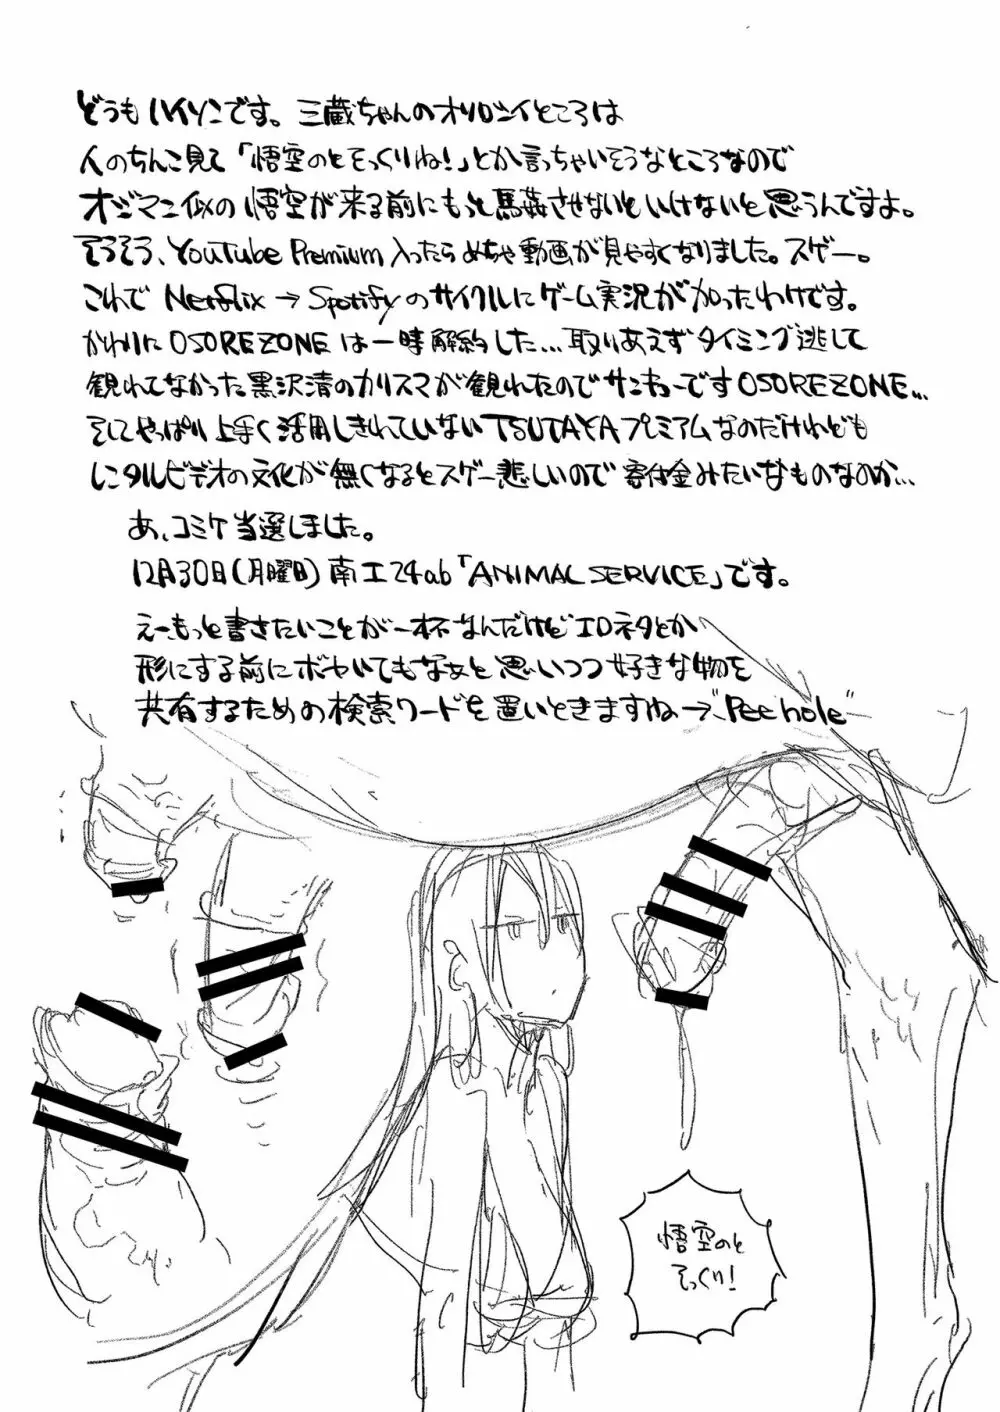 どうもハイソンです。三蔵ちゃんのオソロシイところは
人のちんこ見て「悟空のとそっくりね!」とか言っちゃいそうなところなので
オジマン似の悟空が来る前にもっと馬姦させないといけないと思うんですよ。
そうそう、YouTube Premium入ったらめちゃ動画が見やすくなりました。スゲー。
これで Netflix→Spotifyのサイクルにゲーム実況が加わったわけです。
かわりにOSOREZONEは一時解約した…取りあえずタイミング逃して
観れてなかった黒沢清のカリスマが観れたのでサンキューですOSOREZONE…
そしてやっぱり上手く活用しきれていないTSUTAYAプレミアムなのだけれども
レンタルビデオの文化が無くなるとスゲー悲しいので寄付金みたいなものなのか…
あ、コミケ当選しました。
12月30日(月曜日)南エ24ab「ANIMAL SERVICE」です。
えー、もっと書きたいことが一杯なんだけどエロネタとか
形にする前にボヤいてもなぁと思いつつ好きな物を
共有するための検索ワードを置いときますね→"Pee hole"
悟空のと
そっくり!